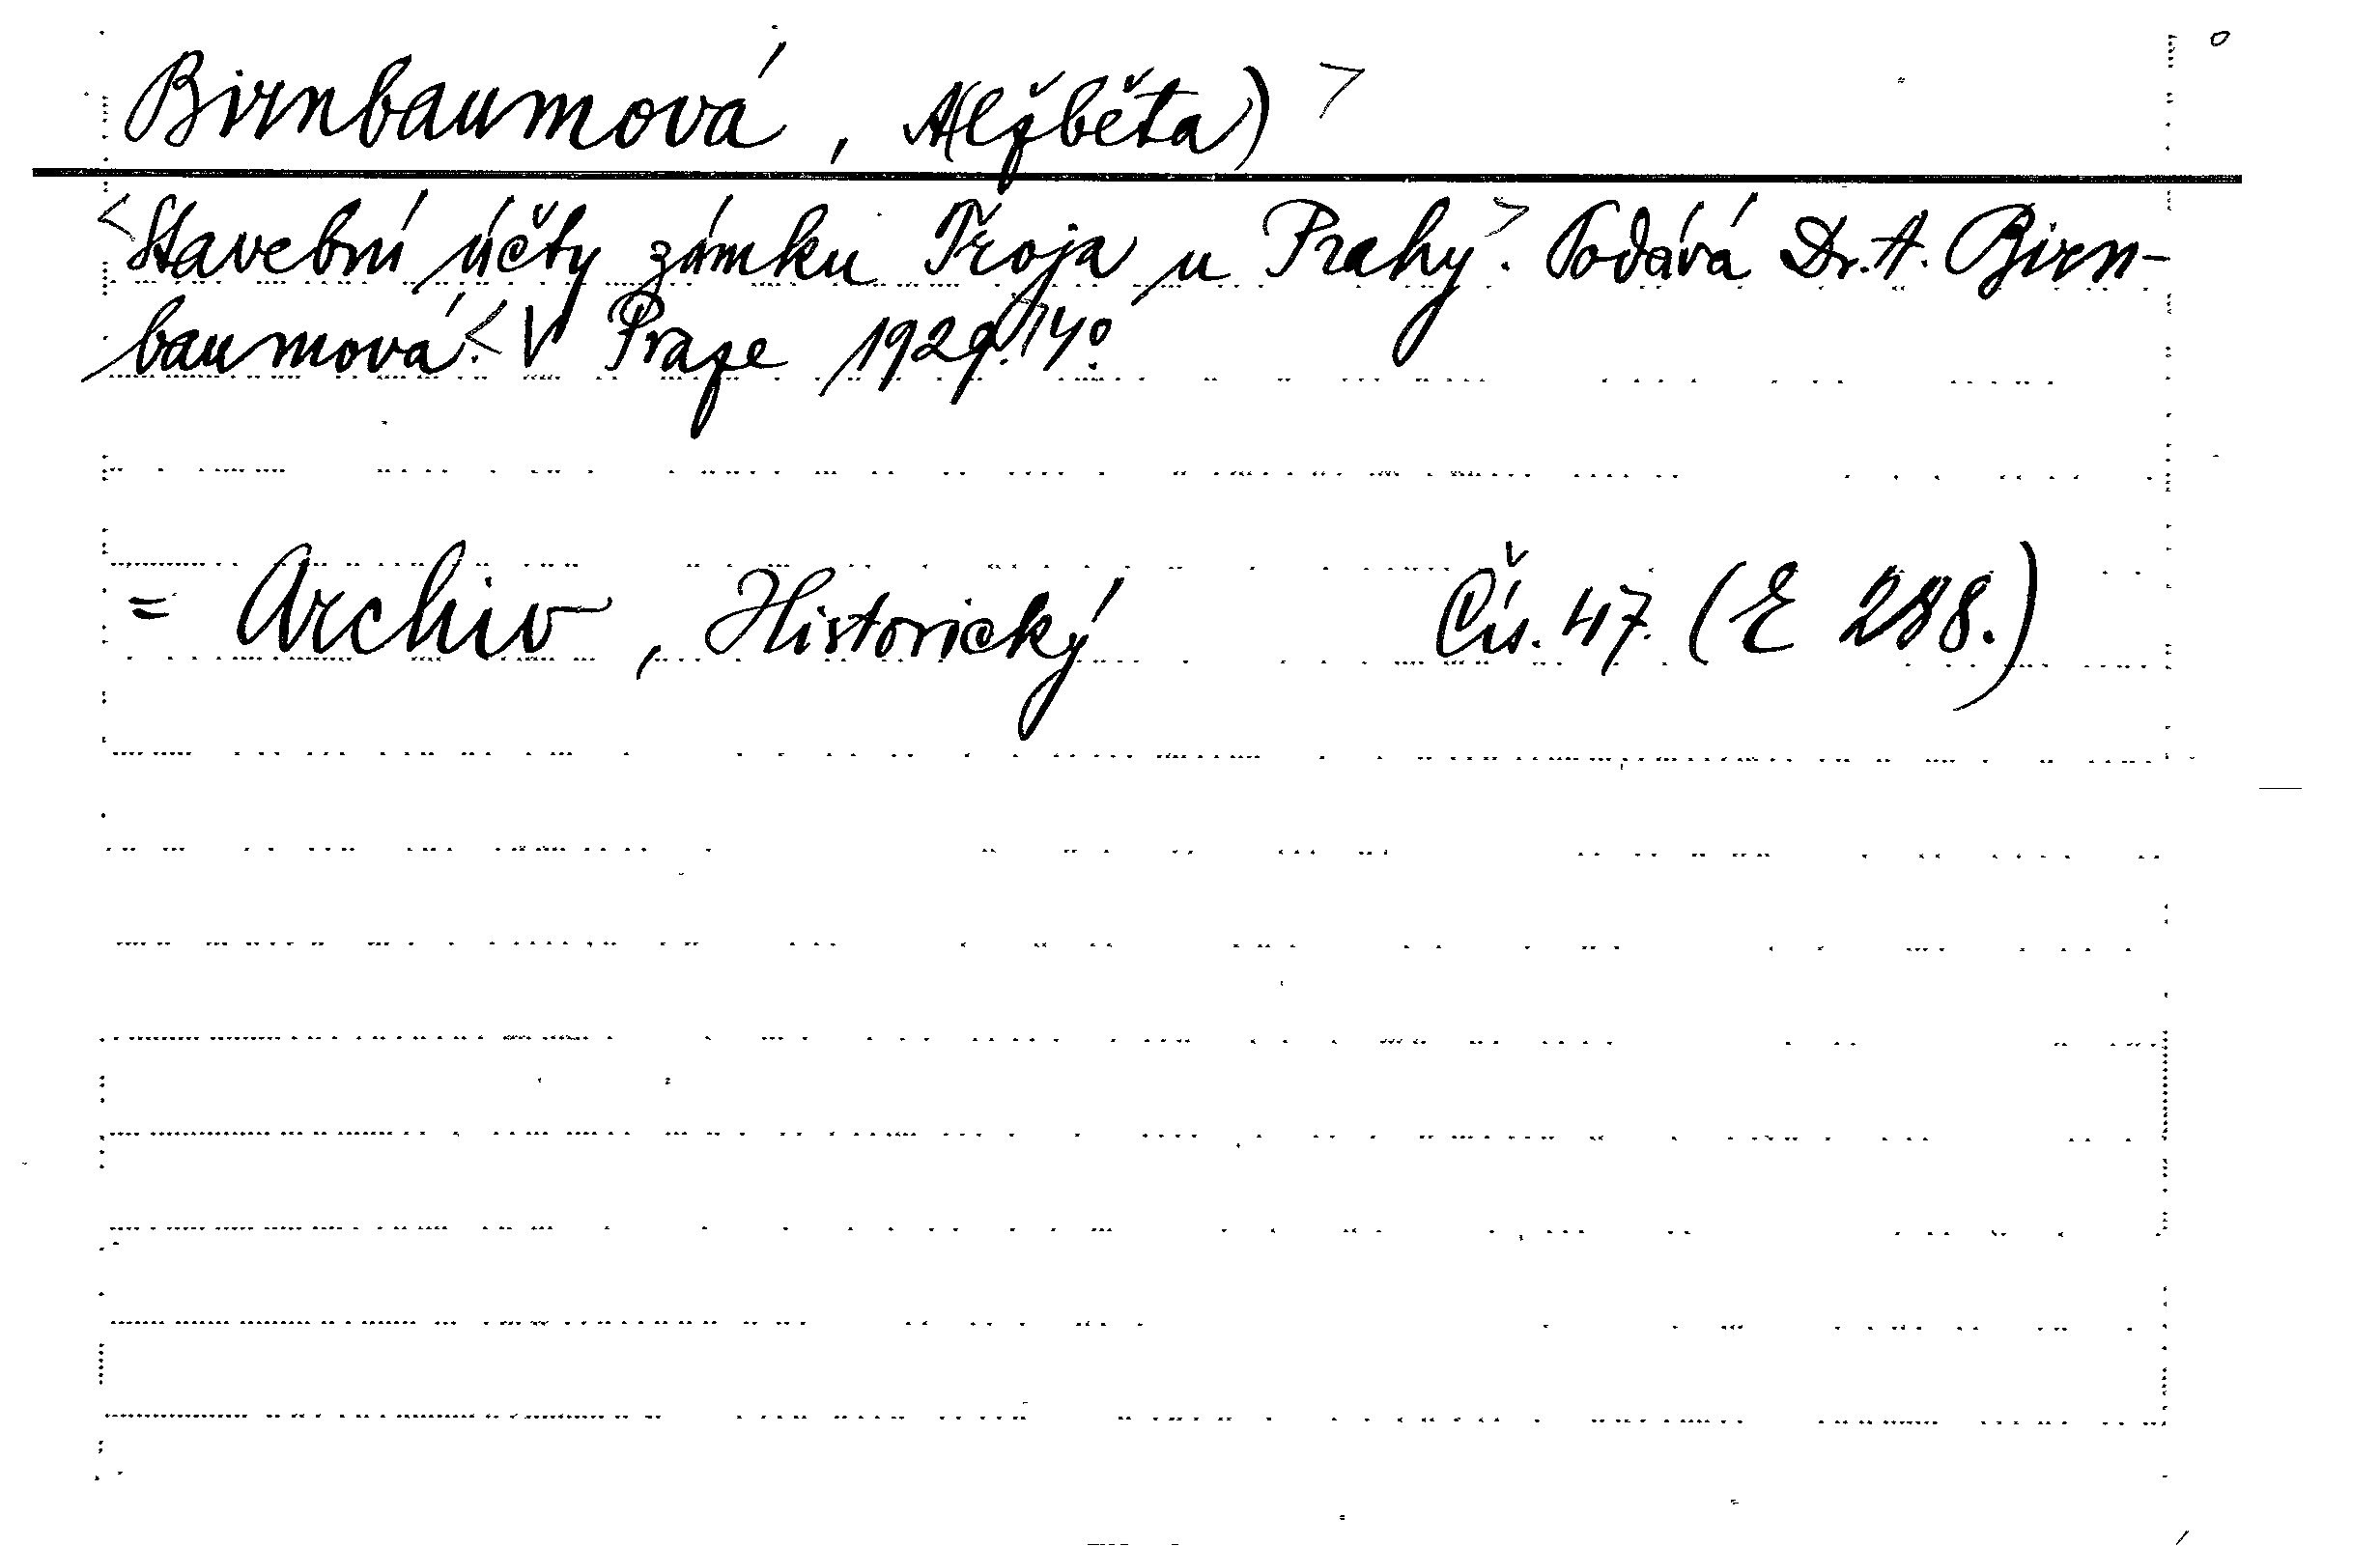 Birnbaumová, A(lžběta) >
<Stavební účty zámku Troja u Prahy>. Podává Dr. A. Birn-
baumová. <V Praze 1929.> 4°.
= Archiv, Historický Čís. 47. (E 288.)